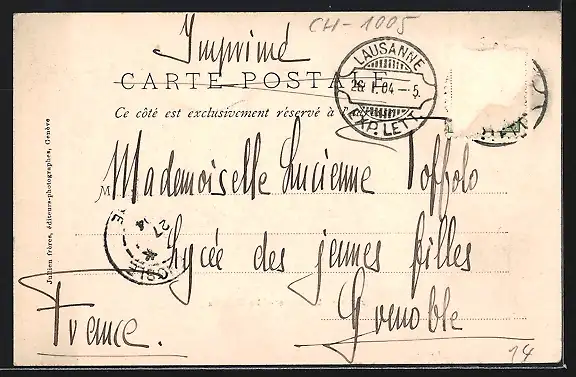 CH-1005
Imprimé
LAUSANNE
CARTE POSTALE
26 I. 04 - 5
EXP. LETT.
Ce côté est exclusivement réservé à l'a
Mademoiselle Lucienne Toffolo
Lycée des jeunes filles
Grenoble
France.
27
14
Jullien frères, éditeurs-photographes, Genève